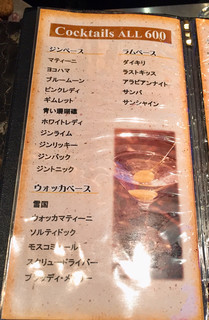 Cocktails ALL 600
ジンベース
マティーニ
ヨコハマ
ブルームーン
ピンクレディ
ギムレット
青い珊瑚礁
ホワイトレディ
ジンライム
ジンリッキー
ジンバック
ジントニック
ウォッカベース
雪国
ウォッカマティーニ
ソルティドック
モスコミュール
スクリュードライバー
ブラッディ・メアリー
ラムベース
ダイキリ
ラストキッス
アラビアンナイト
サンバ
サンシャイン